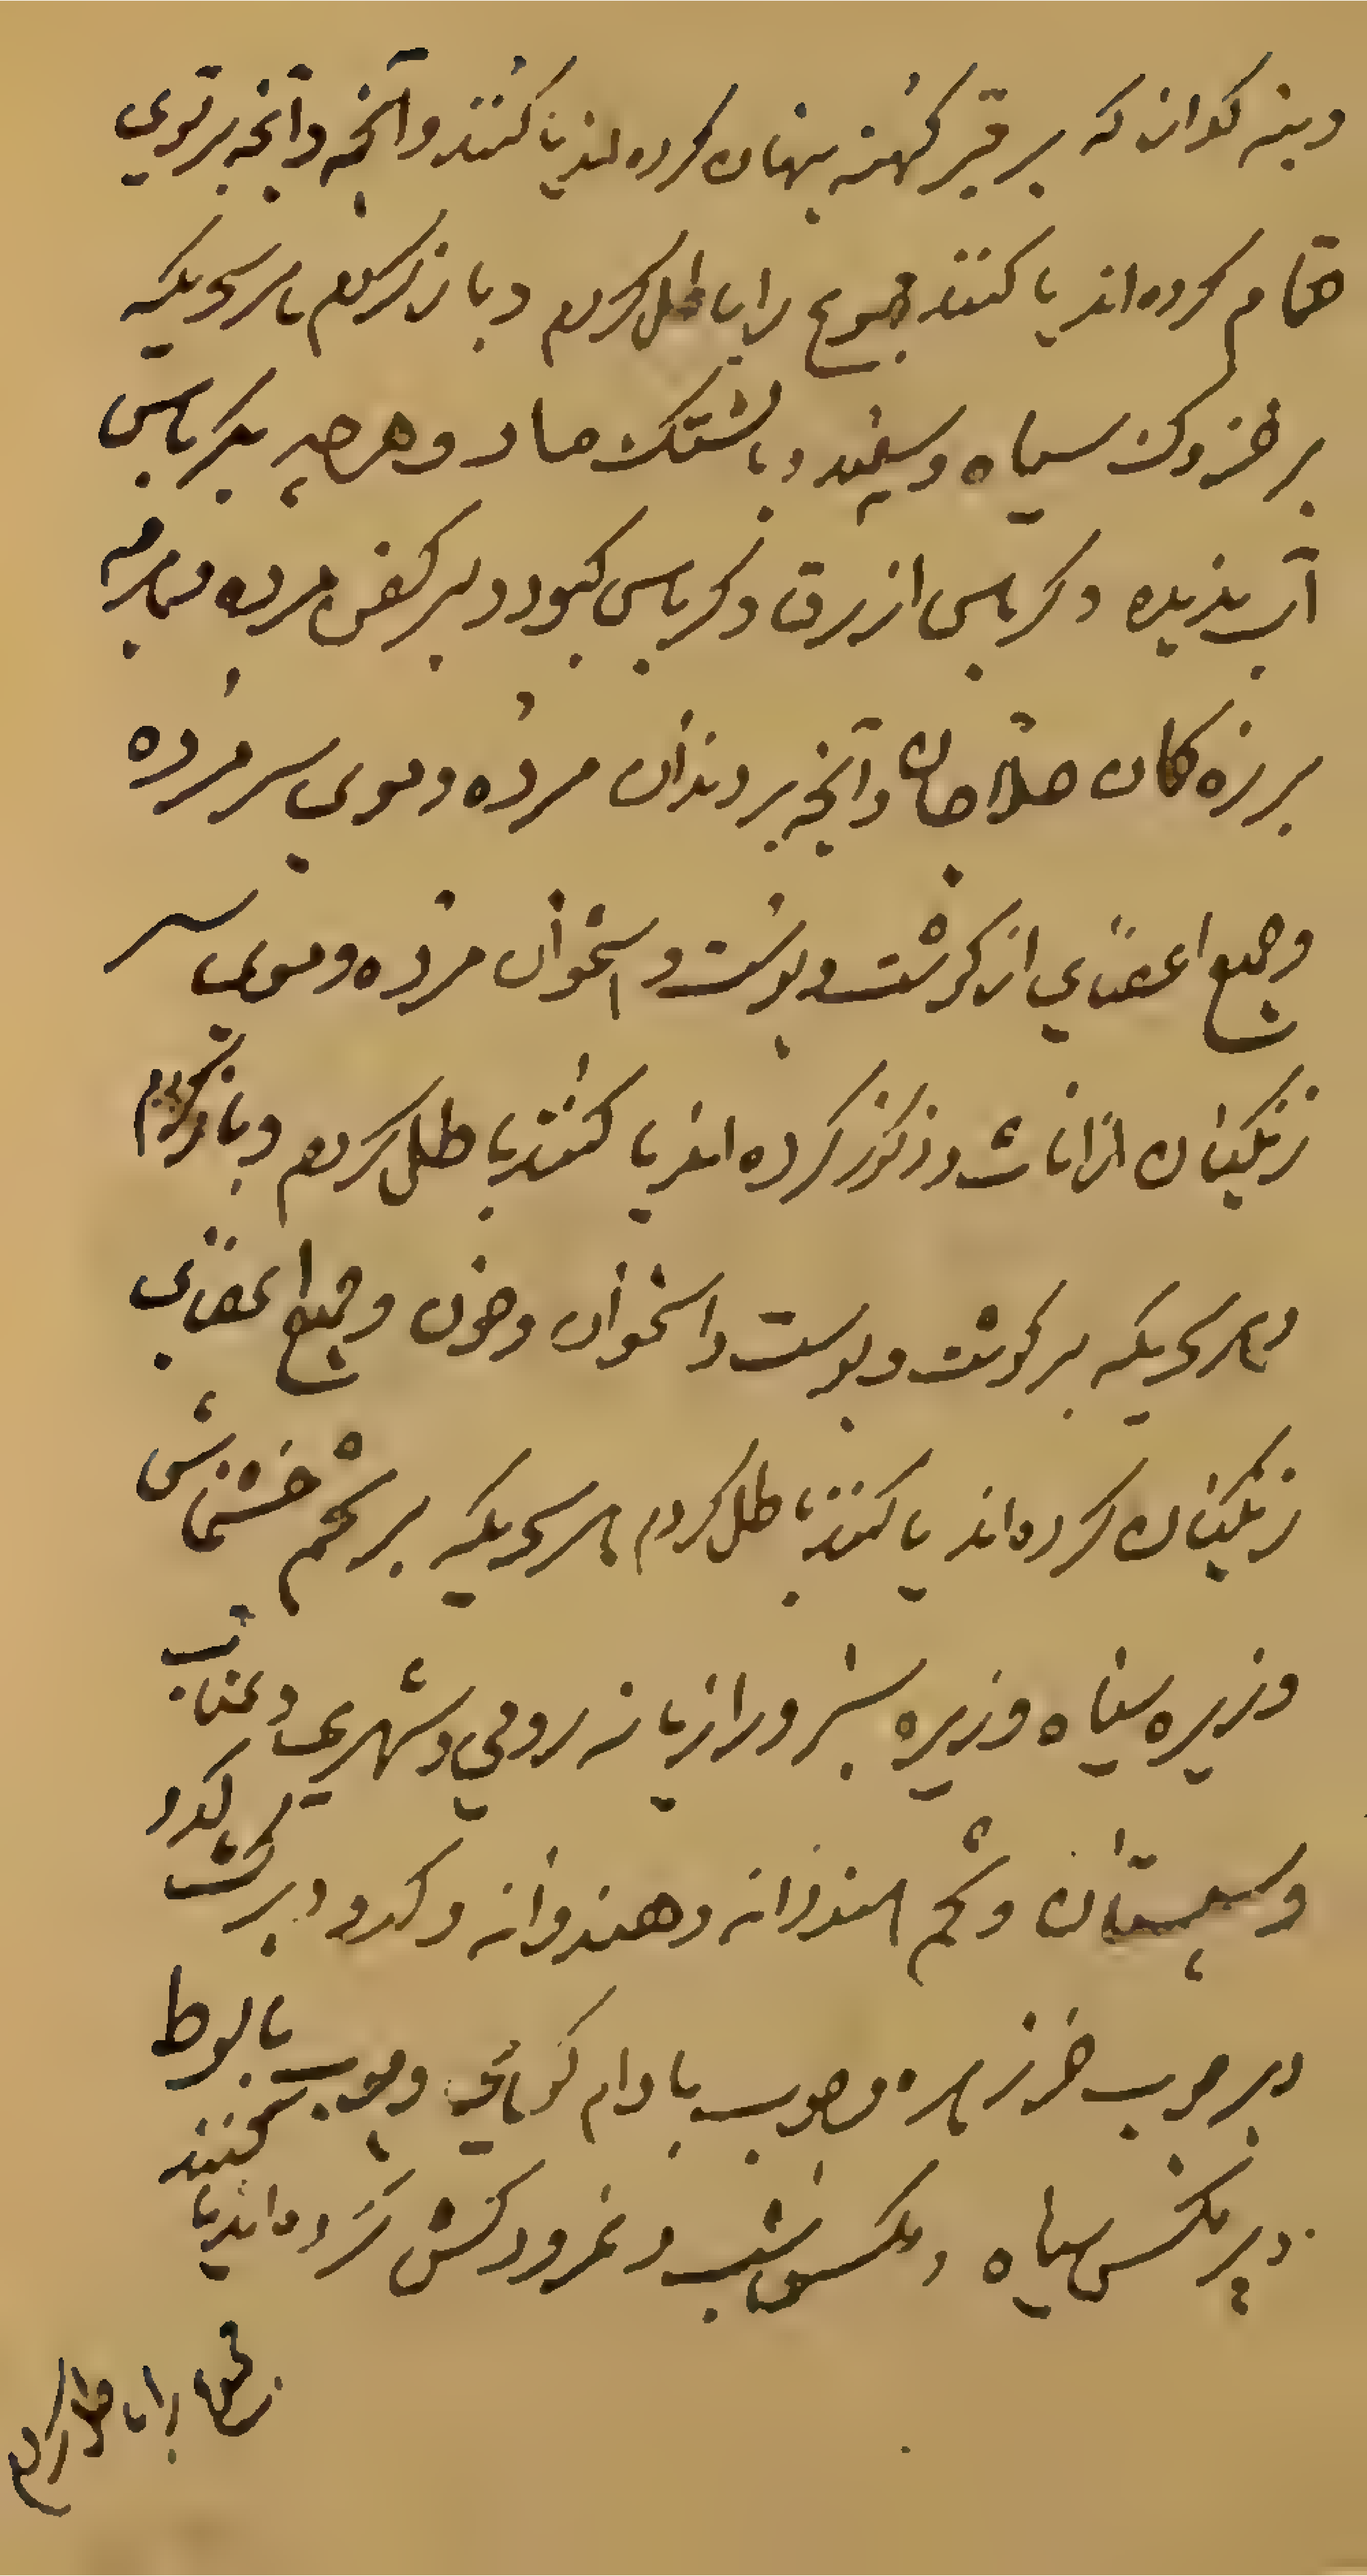 وبنه کوان که بر قبر کهنه پنهان کرده اند یا کنند و آنچه و آنچه بر توی
حمام کرده اند یا کنند جمیع را باطل کردم و باز کردم یا سحریکه
بر سیاه و سفید و هرچه بکرباس
آب ندیده و کرباس ازرقا و کرباس کبود و بر کفن مرده
بر زه کمان حلاجان و آنچه بر دندان مرده و موی سر مرده
و جمیع اعضای از کوشت و پوست و استخوان مرده و موی سر
زنکیان از اناث و ذکور کرده اند یا کنند باطل کردم و باز کردم
و هر سحریکه بر کوشت و پوست و استخوان و خون و جمیع اعضای
زنکیان کرده اند یا کنند باطل کردم هر سحریکه بر تخم خشخاش
و زیره سیاه و زیره سبز و رازیانه رومی و شهری و عناب
و سپستان و تخم هندوانه و کدو و بر برک کدو
و بر چوب خرزهره و چوب بادام کوهی و چوب بالوط
و بر مکس سیاه و مکس شب و کرده اند یا میکنند
را باطل کردم